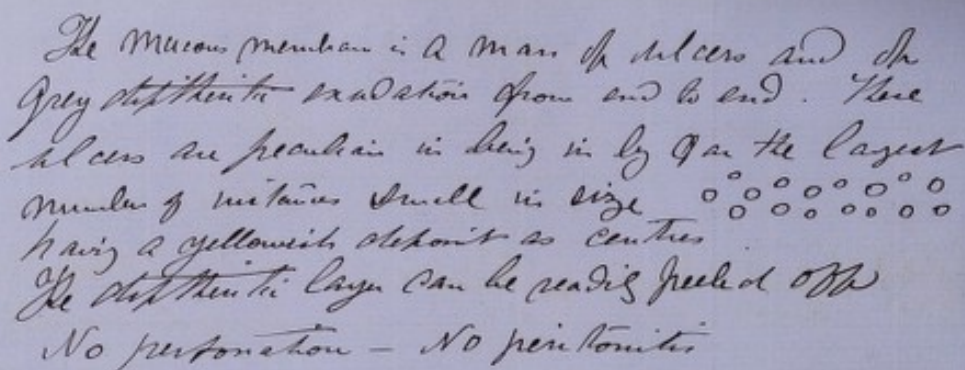 The mucous membrane is a mass of ulcers and of
Grey diphtheritic exudation from end to end. These
ulcers are peculiar in being in by far the largest
number of instances small in size
having a yellowish deposit as centres
The diphtheritic layer can be readily peeled off
No perforation – No peritonitis